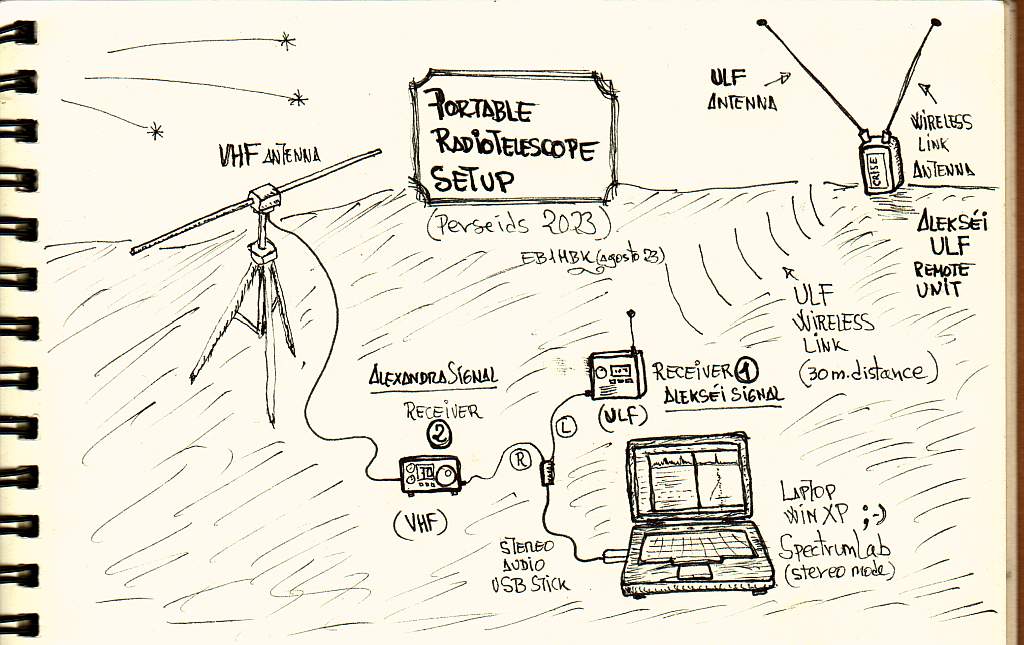 PORTABLE
RADIOTELESCOPE
SETUP
(Perseids 2023)
EB1HBK (agosto 23)
VHF ANTENNA
ULF
ANTENNA
WIRELESS
LINK
ANTENNA
CRISE
ALEKSÉI
ULF
REMOTE
UNIT
ULF
WIRELESS
LINK
(30m. distance)
ALEXANDRA SIGNAL
RECEIVER
2
(VHF)
RECEIVER 1
ALEKSÉI SIGNAL
(ULF)
L
R
STEREO
AUDIO
USB STICK
LAPTOP
WIN XP ;-)
SpectrumLab
(stereo mode)